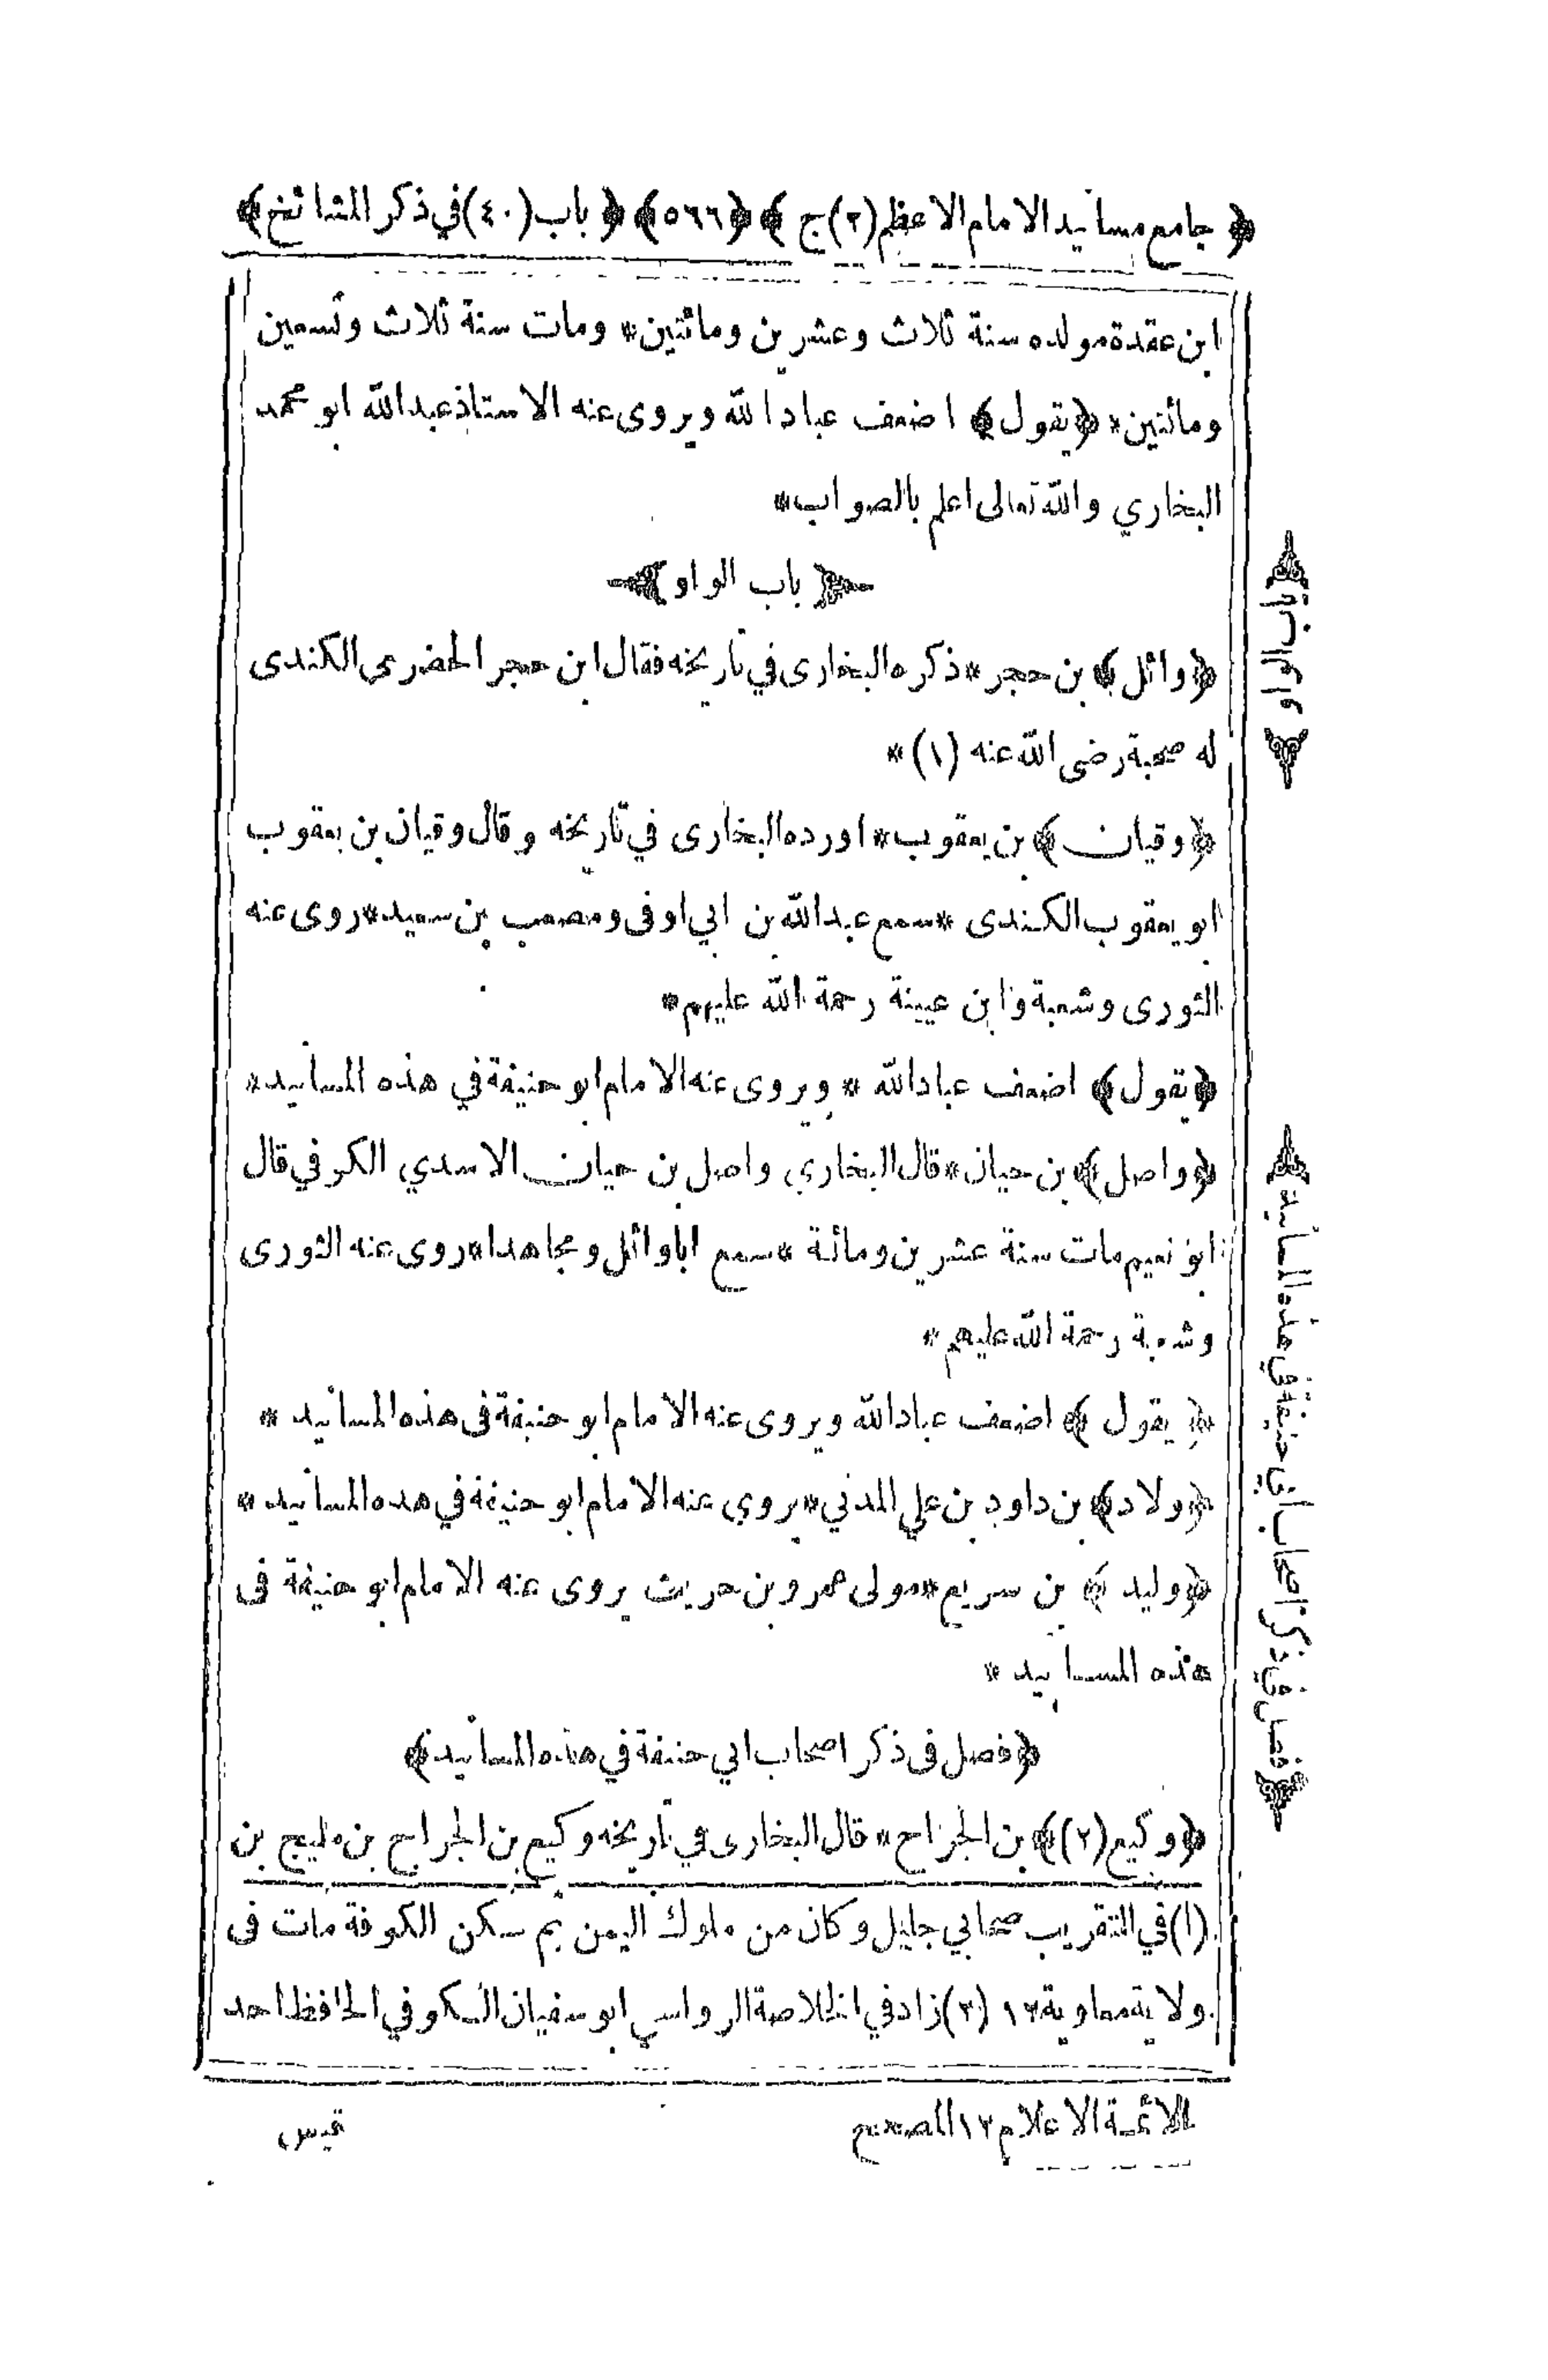 ﴿ جامع مسانيد الامام الاعظم (٢) ج ﴾ ﴿٥٦٦﴾ ﴿ باب (٤٠) في ذكر المشائخ ﴾
ابن عقدة مولده سنة ثلاث وعشرين ومائتين * ومات سنة ثلاث وتسعين
ومائتين * ﴿يقول﴾ اضعف عباد الله ويروى عنه الاستاذ عبد الله ابو محمد
البخاري والله تعالى اعلم بالصواب *
﴿ باب الواو ﴾
﴿وائل﴾ بن حجر * ذكره البخارى في تاريخه فقال ابن حجر الحضرمى الكندى
له صحبة رضى الله عنه (١) *
﴿وقيان﴾ بن يعقوب * اورده البخارى في تاريخه وقال وقيان بن يعقوب
ابو يعقوب الكندى * سمع عبد الله بن ابي اوفى ومصعب بن سعيد * روى عنه
الثورى وشعبة وابن عيينة رحمة الله عليهم *
﴿يقول﴾ اضعف عباد الله * ويروى عنه الامام ابو حنيفة في هذه المسانيد *
﴿واصل﴾ بن حيان * قال البخاري واصل بن حيان الاسدي الكوفي قال
ابو نعيم مات سنة عشرين ومائة * سمع ابا وائل ومجاهدا * روى عنه الثورى
وشعبة رحمة الله عليهم *
﴿ يقول ﴾ اضعف عباد الله ويروى عنه الامام ابو حنيفة فى هذه المسانيد *
﴿ولاد﴾ بن داود بن علي المدني * يروي عنه الامام ابو حنيفة في هذه المسانيد *
﴿وليد ﴾ بن سريع * مولى عمرو بن حريث يروى عنه الامام ابو حنيفة فى
هذه المسانيد *
﴿فصل فى ذكر اصحاب ابي حنيفة في هذه المسانيد﴾
﴿وكيع (٢)﴾ بن الجراح * قال البخارى في تاريخه وكيع بن الجراح بن مليح بن
(١) في التقريب صحابي جليل وكان من ملوك اليمن ثم سكن الكوفة مات فى
ولاية معاوية ١٢ (٢) زاد في الخلاصة الرواسي ابو سفيان الكوفي الحافظ احد
الائمة الاعلام ١٢ المصحح
قيس
﴿ باب الواو ﴾
﴿ فصل في ذكر اصحاب ابي حنيفة في هذه المسانيد ﴾